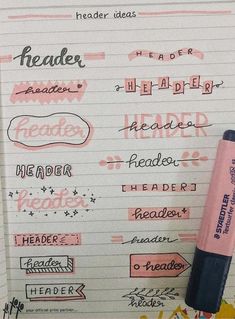 header ideas
header
HEADER
header
HEADER
header
HEADER
HEADER
header
header
[HEADER]
header
HEADER
header
header
header
HEADER
header
your official print partner...
STAEDTLER
Textsurfer classic